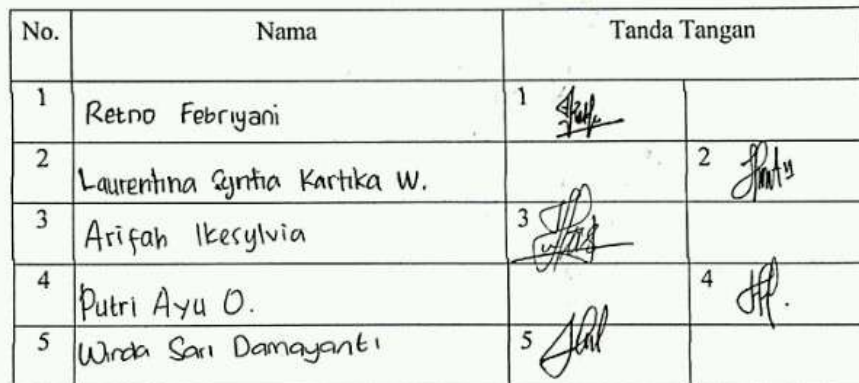 No. Nama Tanda Tangan
1 Retno Febriyani 1
2 Laurentina Syntia Kartika W. 2
3 Arifah Ikesylvia 3
4 Putri Ayu O. 4
5 Winda Sari Damayanti 5